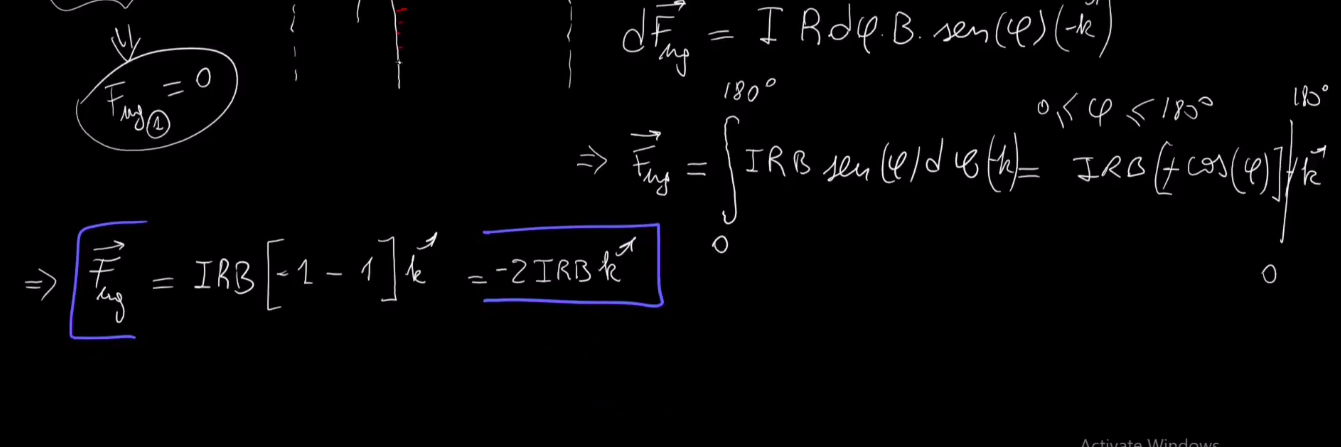 dF⃗mg = I R dφ. B. sen(φ) (-k⃗)
F⃗mg① = 0
0 ≤ φ ≤ 180°
⇒ F⃗mg = ∫₀^180° I R B sen(φ) d φ (-k⃗) = I R B [+ cos(φ)] |₀^180° + k⃗
⇒ F⃗mg = I R B [-1 - 1] k⃗ = -2 I R B k⃗
Activate Windows